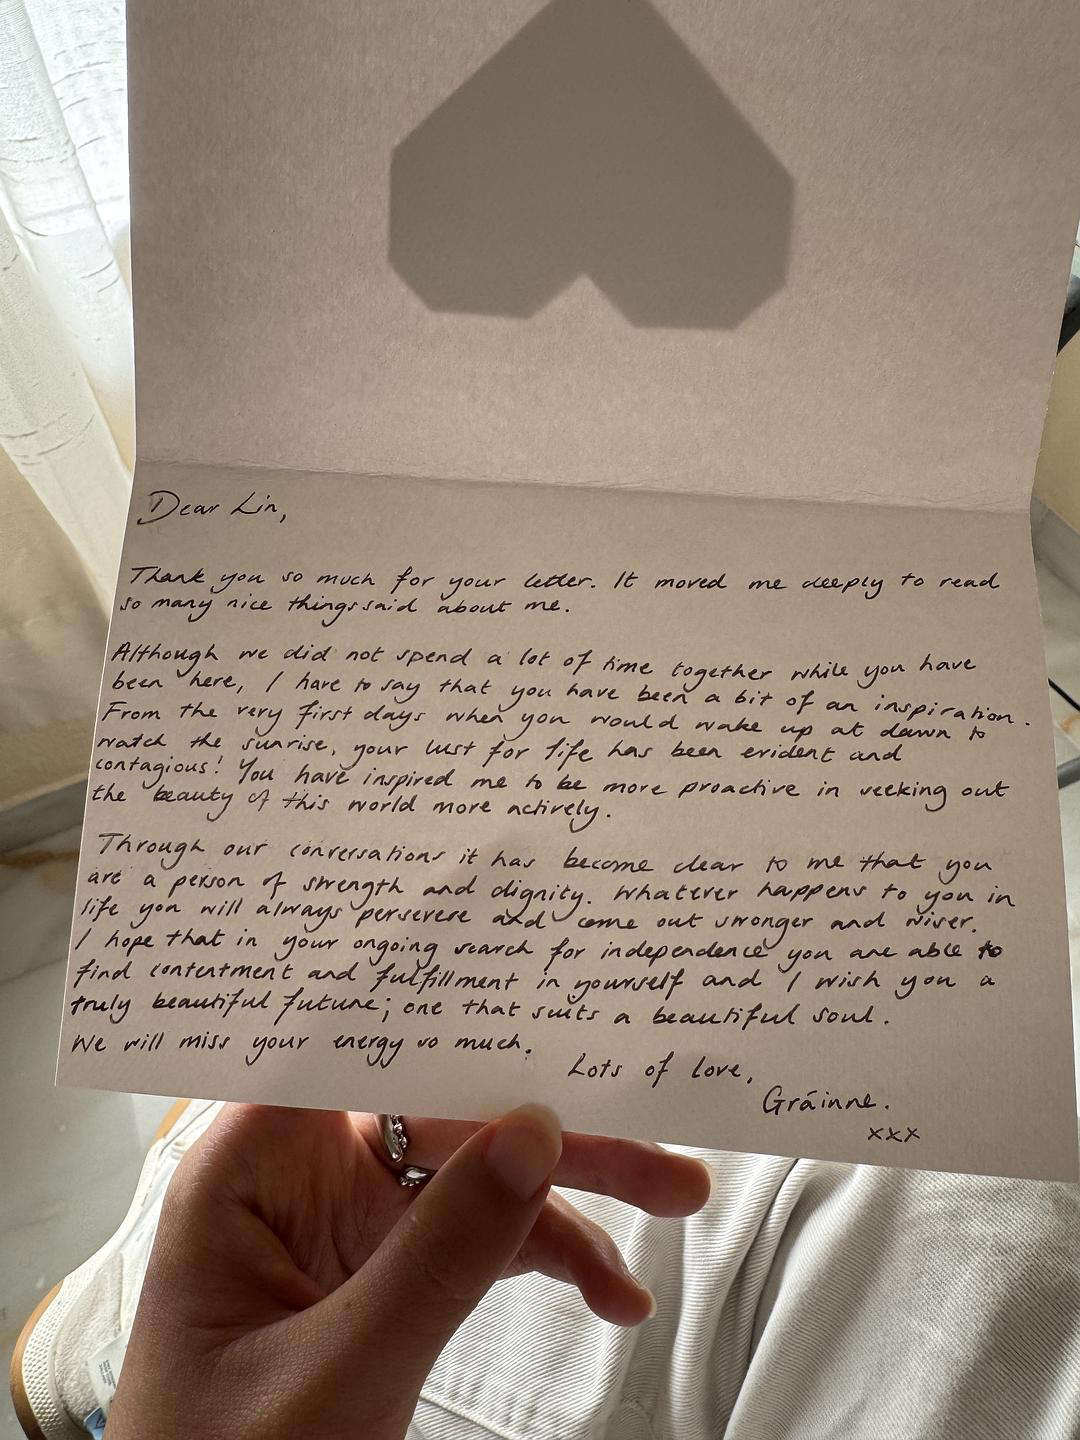 Dear Lin,
Thank you so much for your letter. It moved me deeply to read
so many nice things said about me.
Although we did not spend a lot of time together while you have
been here, I have to say that you have been a bit of an inspiration.
From the very first days when you would wake up at dawn to
watch the sunrise, your lust for life has been evident and
contagious! You have inspired me to be more proactive in seeking out
the beauty of this world more actively.
Through our conversations it has become clear to me that you
are a person of strength and dignity. Whatever happens to you in
life you will always persevere and come out stronger and wiser.
I hope that in your ongoing search for independence you are able to
find contentment and fulfillment in yourself and I wish you a
truly beautiful future; one that suits a beautiful soul.
We will miss your energy so much.
Lots of love,
Gráinne.
xxx